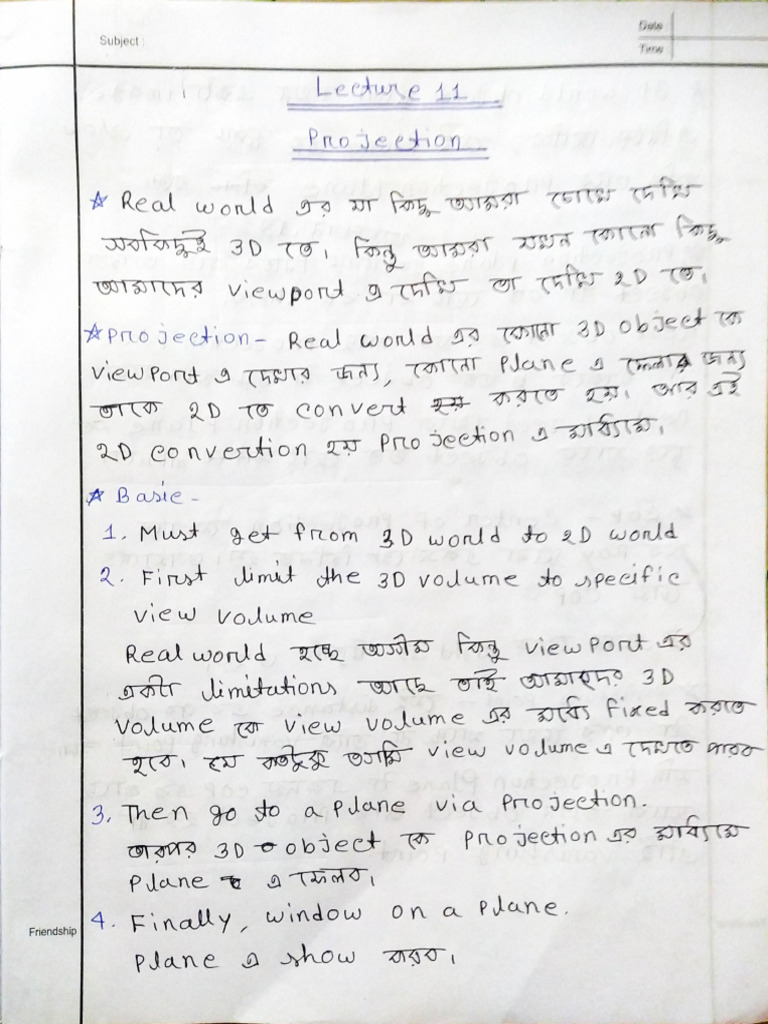 Date
Subject :
Time
Lecture 11
Projection
☆ Real world এর যা কিছু আমরা চোখে দেখি
সবকিছুই 3D তে। কিন্তু আমরা যখন কোনো কিছু
আমাদের viewport এ দেখি তা দেখি 2D তে।
☆ Projection - Real world এর কোনো 3D object কে
viewport এ দেখার জন্য, কোনো plane এ ফেলার জন্য
তাকে 2D তে convert করতে হয়। আর এই
2D convertion হয় projection এ মাধ্যমে।
☆ Basic -
1. Must get from 3D world to 2D world
2. First limit the 3D volume to specific
view volume
Real world হচ্ছে অসীম কিন্তু viewport এর
একটা limitations আছে তাই আমাদের 3D
volume কে view volume এর মধ্যে fixed করতে
হবে। যে কতটুকু আমি view volume এ দেখতে পারব
3. Then go to a plane via projection.
তারপর 3D object কে projection এর মাধ্যমে
plane এ ফেলব।
4. Finally, window on a plane.
Friendship
plane এ show করব।